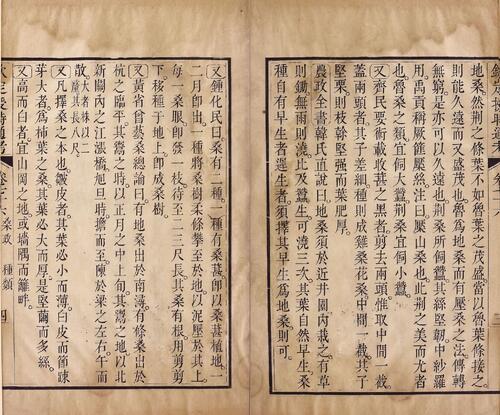 地桑然荆之條葉不如魯葉之盛茂當以魯葉條接之
則能久遠而又盛茂也魯爲地桑而有壓桑之法傳轉
無窮是亦可以久遠也荆桑所飼蠶其絲堅韌中紗羅
用禹貢稱厥篚檿絲注曰檿山桑也此荆之美而尤者
也魯桑之類宜飼大蠶荆桑宜飼小蠶
又齊民要術載收葚之黑者剪去兩頭惟取中間一截
蓋兩頭者其子差細種則成雞桑花桑中間一截其子
堅栗則枝榦堅强而葉肥厚
農政全書韓氏直說曰地桑須於近井園內栽之有草
則鋤無雨則澆比及蠶生可澆三次其葉自然早生桑
種自有早生者遲生者須擇其早生爲地桑則可
又鍾化民曰桑有二種一種有桑葚卽以桑葚植地一
二月卽出一種將桑樹柔條攀至於地以泥壓於其上
每一桑眼卽發一枝待至二三尺長其桑有根用剪剪
下移種于地上卽成桑樹
又黃省曾藝桑總論曰有地桑出於南潯有條桑出於
杭之臨平其鬻之時以正月之中上旬其鬻之地以北
新關內之江漲橋旭日時擔而至陳於梁之左右午而
散大者株以二釐其長八尺
又凡擇桑之本也皺皮者其葉必小而薄白皮而節疎
芽大者爲柿葉之桑其葉必大而厚是堅繭而多絲
又高而白者宜山岡之地或墻隅而籬畔
桑政 種類 四